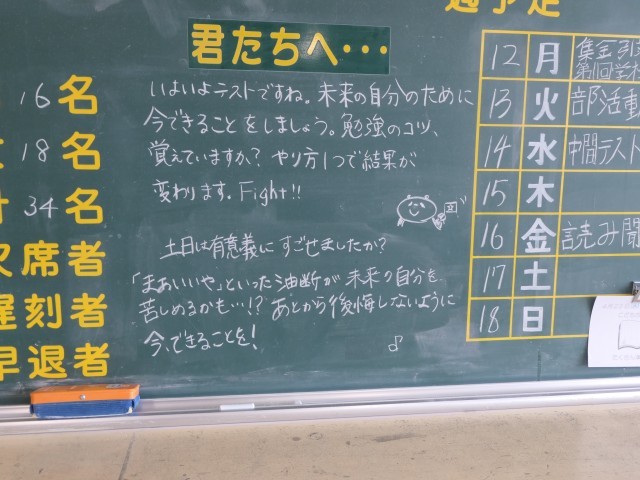 週予定
君たちへ・・・
いよいよテストですね。未来の自分のために
今できることをしましょう。勉強のコツ、
覚えていますか？やり方1つで結果が
変わります。Fight!!
土日は有意義にすごせましたか？
「まぁいいや」といった油断が未来の自分を
苦しめるかも…!？あとから後悔しないように
今、できることを！
16名
18名
計34名
欠席者
遅刻者
早退者
12 月 集金引
第1回学校
13 火 部活動
14 水 中間テスト
15 木
16 金 読み聞
17 土
18 日